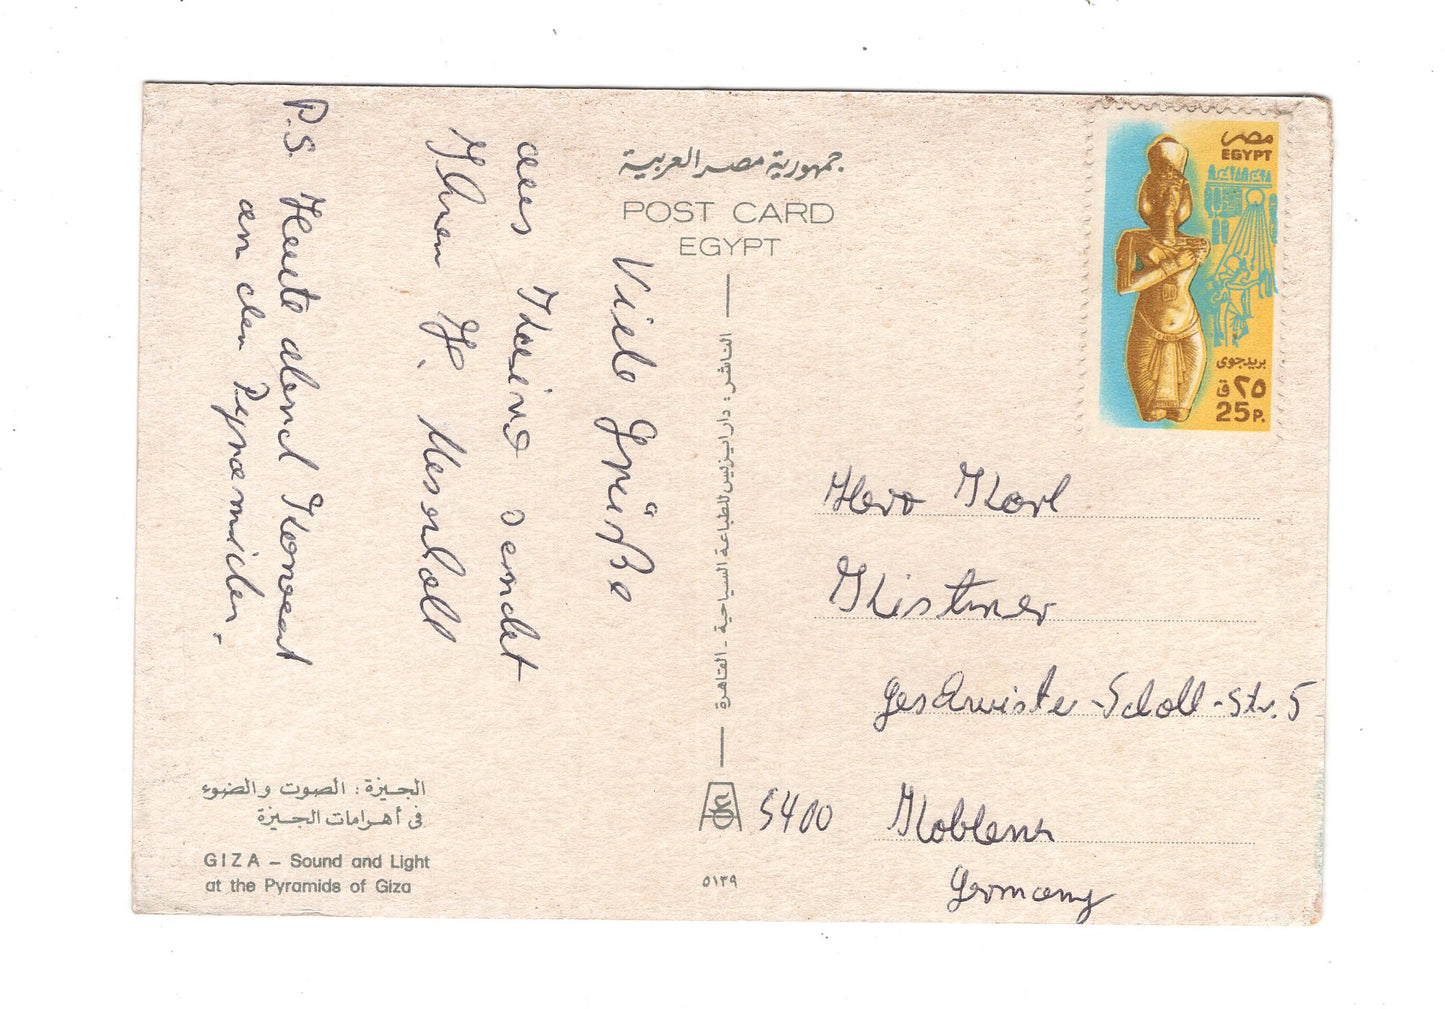 جمهورية مصر العربية
POST CARD
EGYPT
Viele Grüße
aus Kairo sendet
Ihnen H.
P.S. Heute abend Konzert
an den Pyramiden.
الناشر : دار ايزيس للطباعة السياحية - القاهرة
مصر
EGYPT
بريد جوى
٢٥ ق
25 P.
Herr Karl
Kistner
Geschwister-Scholl-Str. 5
5400 Koblenz
Germany
الجيزة : الصوت والضوء
فى أهرامات الجيزة
GIZA – Sound and Light
at the Pyramids of Giza
٥١٣٩